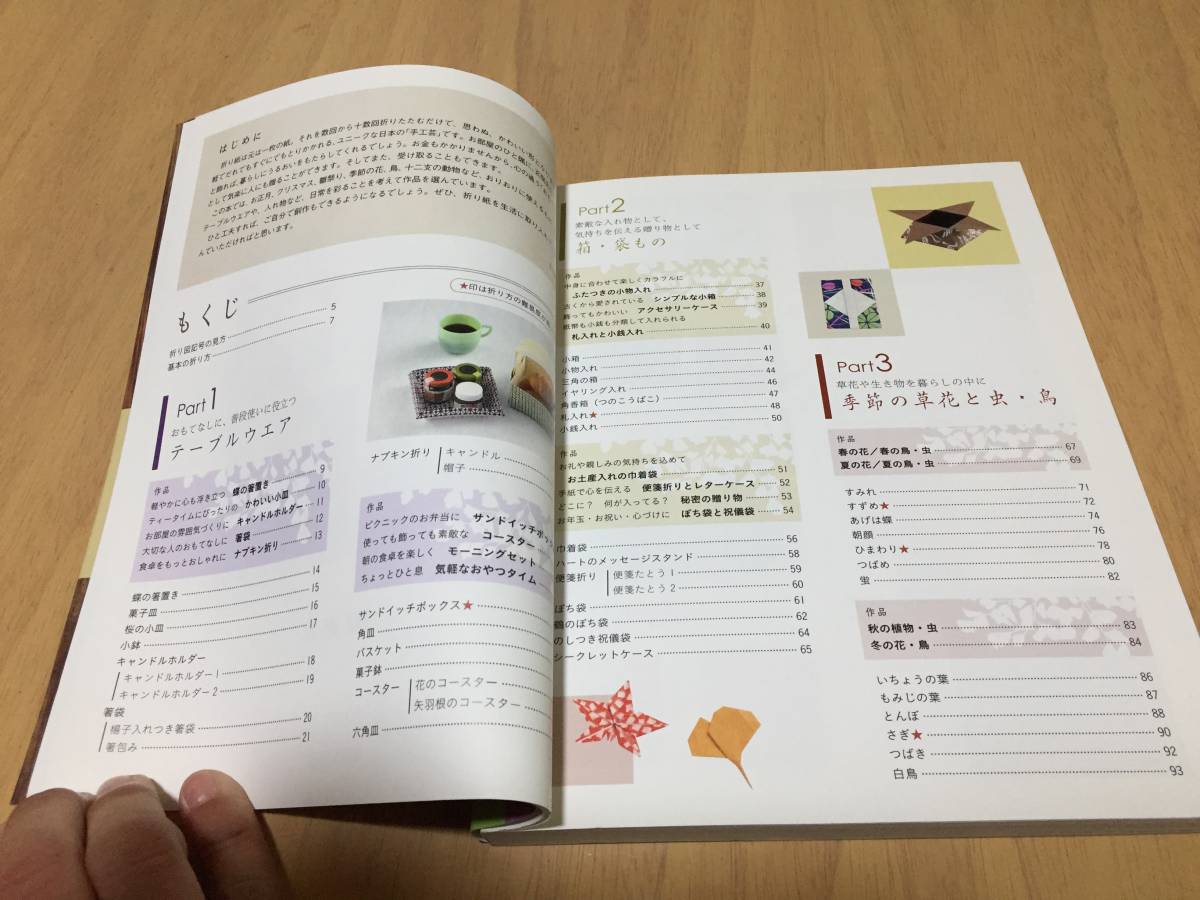 はじめに
折り紙は元は一枚の紙。それを数回から十数回折りたたむだけで、思わぬ、かわいい形
軽てだれでもすぐにでもとりかかれる、ユニークな日本の「手工芸」です。お部屋のひと隅に
と飾れば、暮らしにうるおいをもたらしてくれるでしょう。お金もかかりませんから、心の通う
として気楽に人にも贈ることができます。そしてまた、受け取ることもできます。
この本では、お正月、クリスマス、雛祭り、季節の花、鳥、十二支の動物など、おりおりに使える
テーブルウエアや、入れ物など、日常を彩ることを考えて作品を選んでいます。
ひと工夫すれば、ご自分で創作もできるようになるでしょう。ぜひ、折り紙を生活に取り入れ
んでいただければと思います。
もくじ
★印は折り方の難易度が
折り図記号の見方 5
基本の折り方 7
Part1
おもてなしに、普段使いに役立つ
テーブルウエア
作品
軽やかに心も浮き立つ 蝶の箸置き 9
ティータイムにぴったりの かわいい小皿 10
お部屋の雰囲気づくりに キャンドルホルダー 11
大切な人のおもてなしに 箸袋 12
食卓をもっとおしゃれに ナプキン折り 13
蝶の箸置き 14
菓子皿 15
桜の小皿 16
小鉢 17
キャンドルホルダー
キャンドルホルダー1 18
キャンドルホルダー2 19
箸袋
楊子入れつき箸袋 20
箸包み 21
ナプキン折り
キャンドル
帽子
作品
ピクニックのお弁当に サンドイッチボックス
使っても飾っても素敵な コースター
朝の食卓を楽しく モーニングセット
ちょっとひと息 気軽なおやつタイム
サンドイッチボックス★
角皿
バスケット
菓子鉢
コースター
花のコースター
矢羽根のコースター
六角皿
Part2
素敵な入れ物として、
気持ちを伝える贈り物として
箱・袋もの
作品
中身に合わせて楽しくカラフルに
ふたつきの小物入れ 37
古くから愛されている シンプルな小箱 38
飾ってもかわいい アクセサリーケース 39
紙幣も小銭も分類して入れられる
札入れと小銭入れ 40
小箱 41
小物入れ 42
三角の箱 44
イヤリング入れ 46
角香箱（つのこうばこ） 47
札入れ★ 48
小銭入れ 50
作品
お礼や親しみの気持ちを込めて
お土産入れの巾着袋 51
手紙で心を伝える 便箋折りとレターケース 52
どこに？ 何が入ってる？ 秘密の贈り物 53
お年玉・お祝い・心づけに ぽち袋と祝儀袋 54
巾着袋 56
ハートのメッセージスタンド 58
便箋折り
便箋たとう1 59
便箋たとう2 60
ぽち袋 61
鶴のぽち袋 62
のしつき祝儀袋 64
シークレットケース 65
Part3
草花や生き物を暮らしの中に
季節の草花と虫・鳥
作品
春の花／春の鳥・虫 67
夏の花／夏の鳥・虫 69
すみれ 71
すずめ★ 72
あげは蝶 74
朝顔 76
ひまわり★ 78
つばめ 80
蛍 82
作品
秋の植物・虫 83
冬の花・鳥 84
いちょうの葉 86
もみじの葉 87
とんぼ 88
さぎ★ 90
つばき 92
白鳥 93